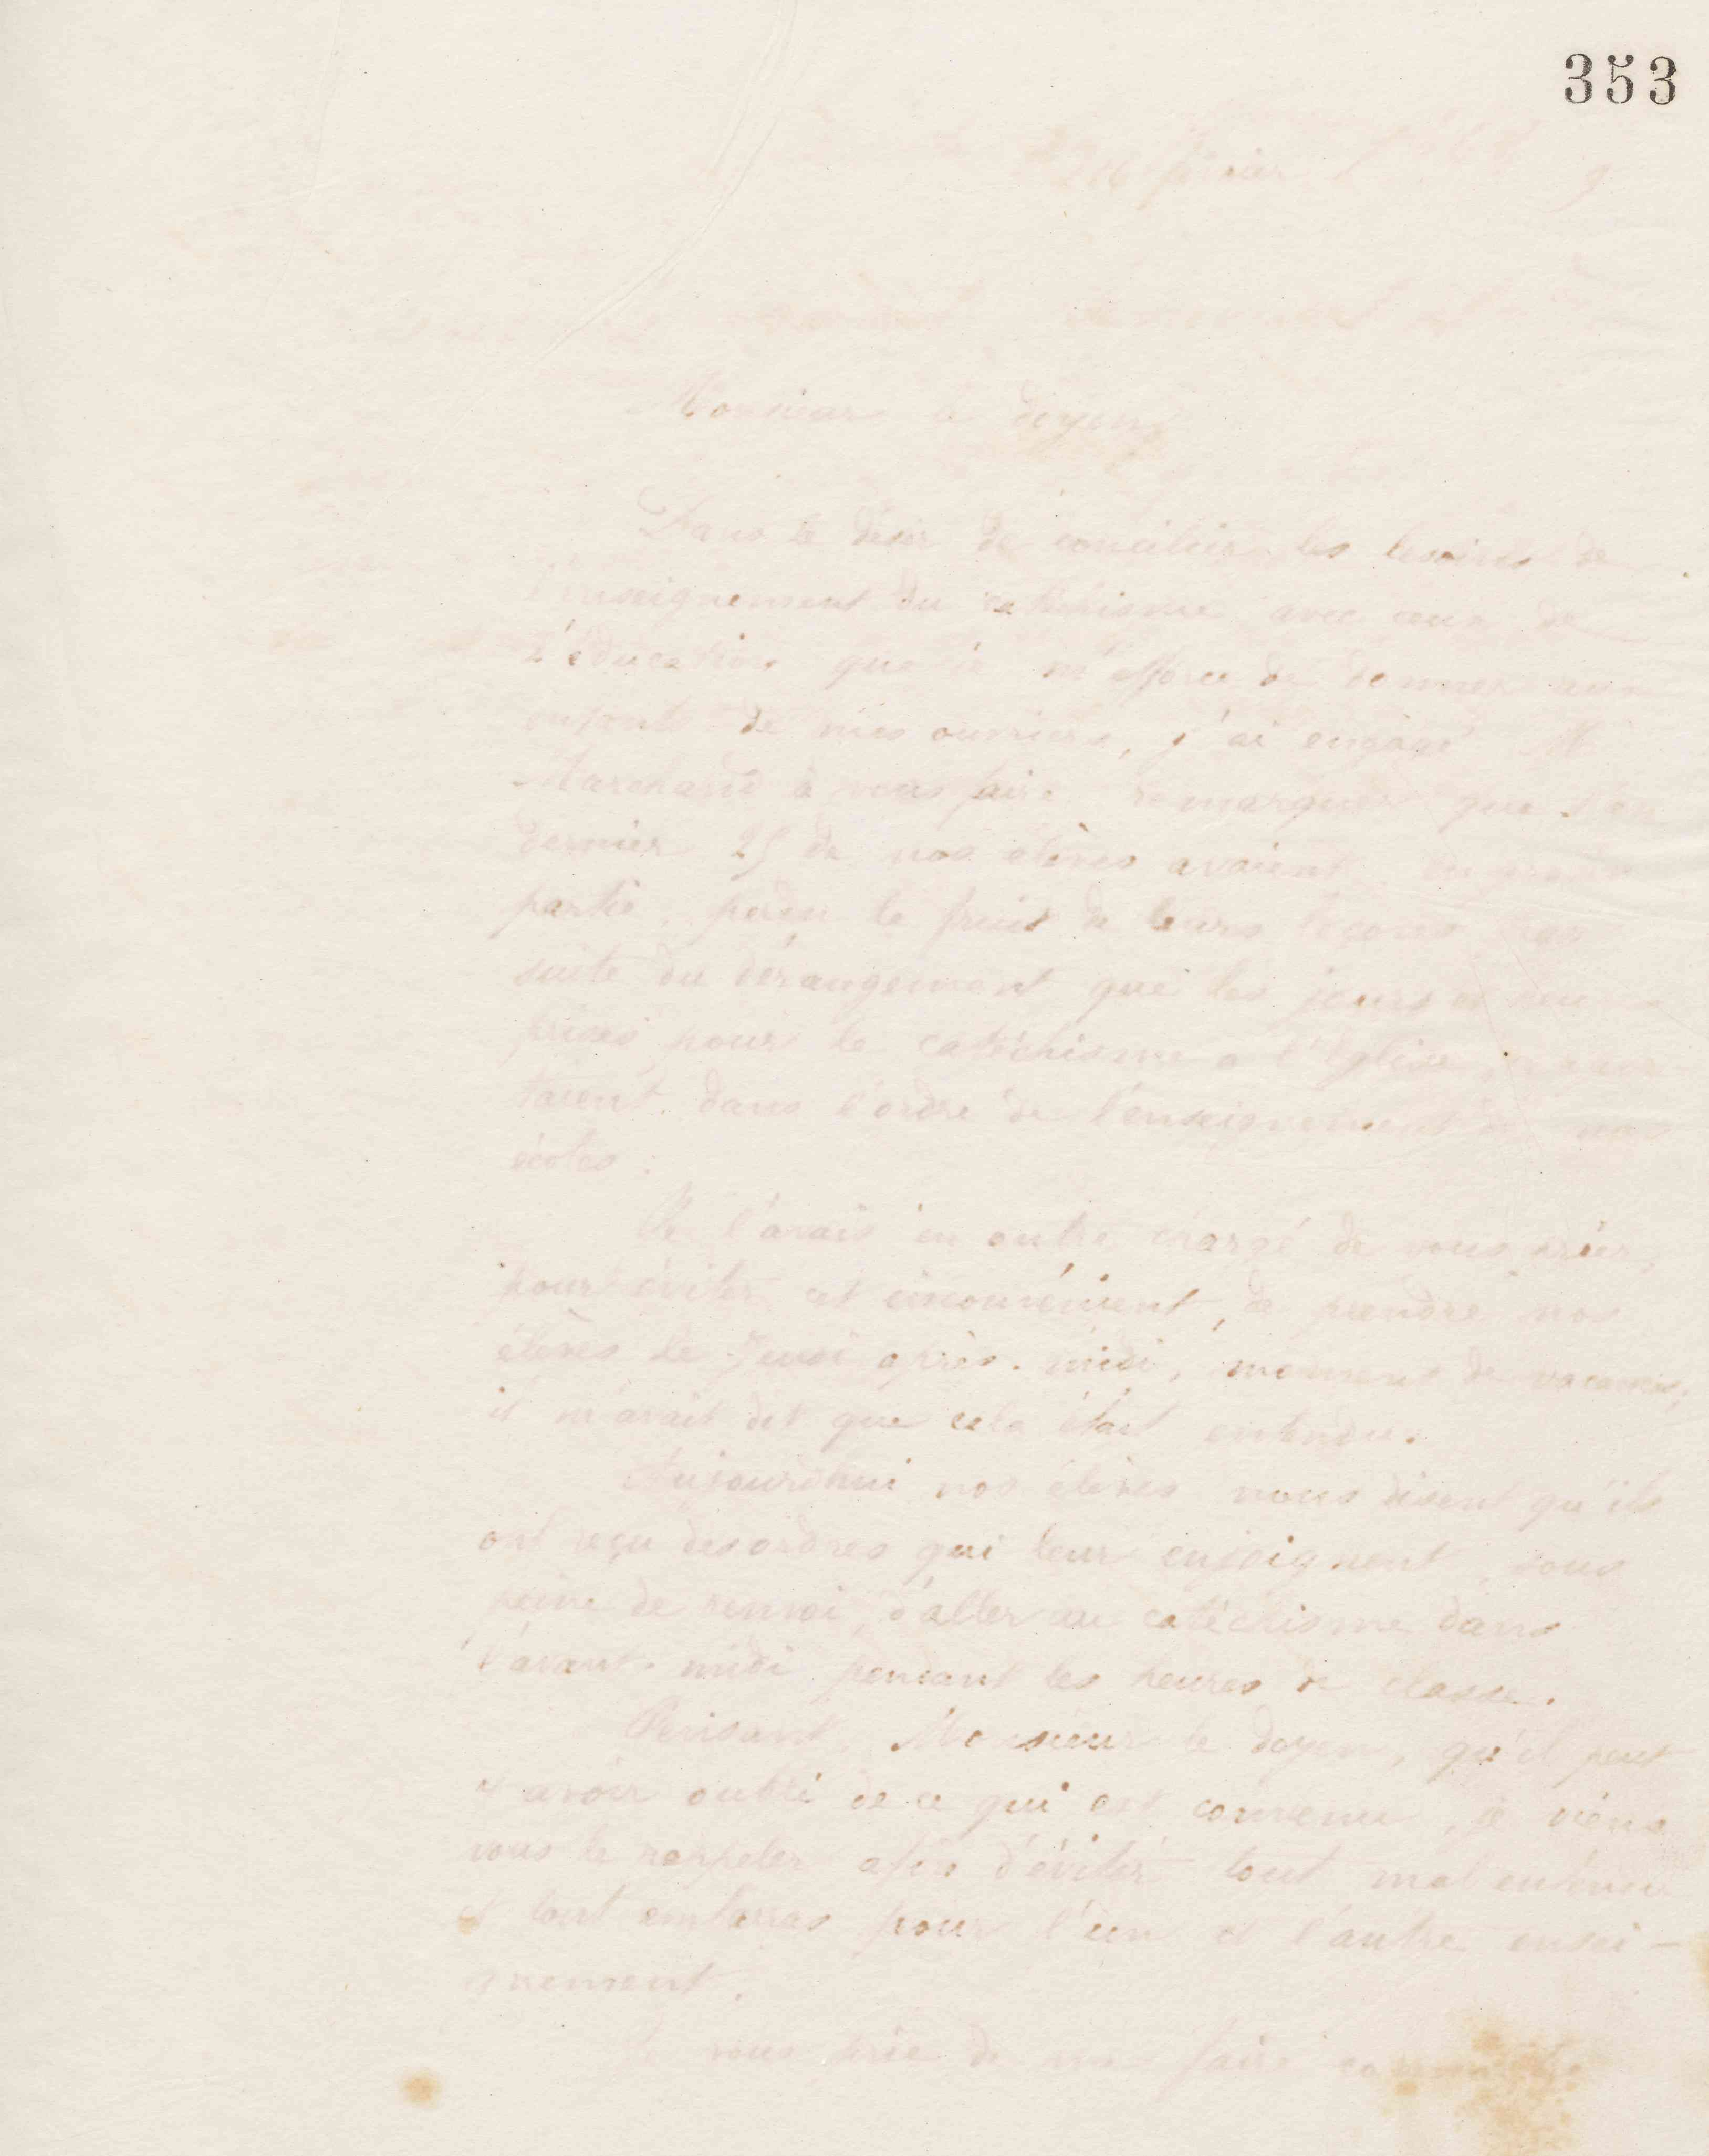 353
26 février
Monsieur le doyen,
Dans le désir de concilier les besoins de
l'enseignement du catéchisme avec ceux de
l'éducation que je m'efforce de donner aux
enfants de mes ouvriers, j'ai engagé M
Marchand à vous faire remarquer que l'an
dernier 25 de nos élèves avaient, en grande
partie, perdu le fruit de leurs leçons par
suite du dérangement que les jours et heures
prises pour le catéchisme à l'Eglise,
taient dans l'ordre de l'enseignement de nos
écoles.
Je l'avais en outre chargé de vous prier,
pour éviter cet inconvénient, de prendre nos
élèves le Jeudi après-midi, moment de vacances,
il m'avait dit que cela était entendu.
Aujourd'hui nos élèves nous disent qu'ils
ont reçu des ordres qui leur enjoignent, sous
peine de renvoi, d'aller au catéchisme dans
l'avant-midi pendant les heures de classe.
Pensant, Monsieur le doyen, qu'il peut
y avoir oubli de ce qui est convenu, je viens
vous le rappeler afin d'éviter tout mal entendu
et tout embarras pour l'un et l'autre ensei-
gnement.
Je vous prie de me faire connaître